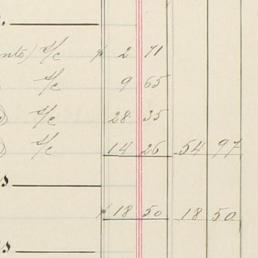 nts) S/c $ 2 71
S/c 9 65
) S/c 28 35
) S/c 14 26 54 97
s
$ 18 50 18 50
s